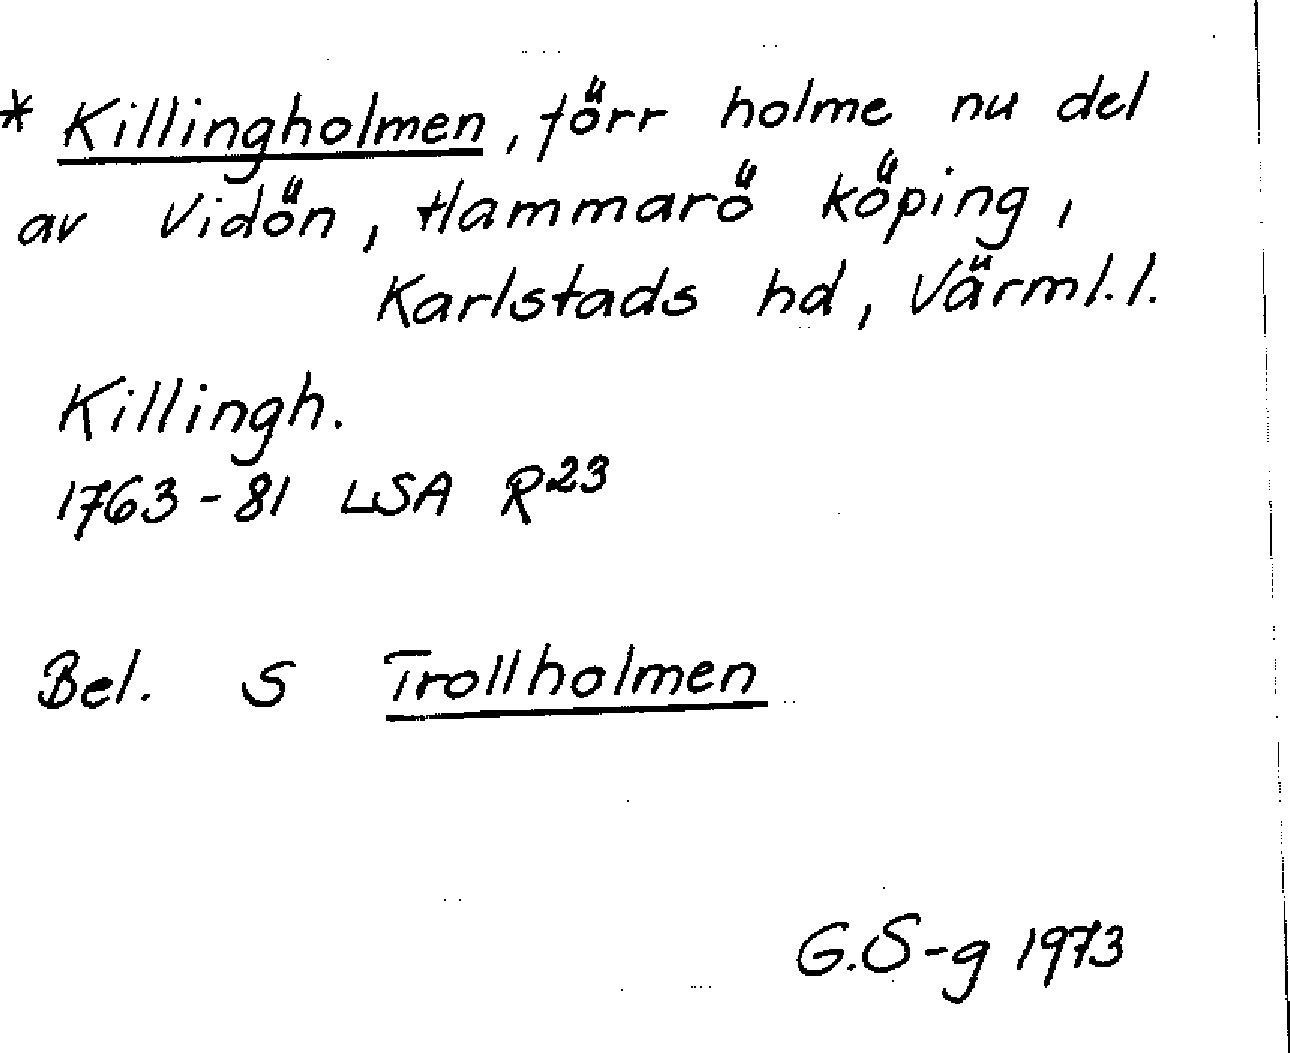 * Killingholmen, förr holme nu del
av Vidön, Hammarö köping,
Karlstads hd, Värml.l.
Killingh.
1763-81 LSA R23
Bel. S Trollholmen
G.S-g 1973